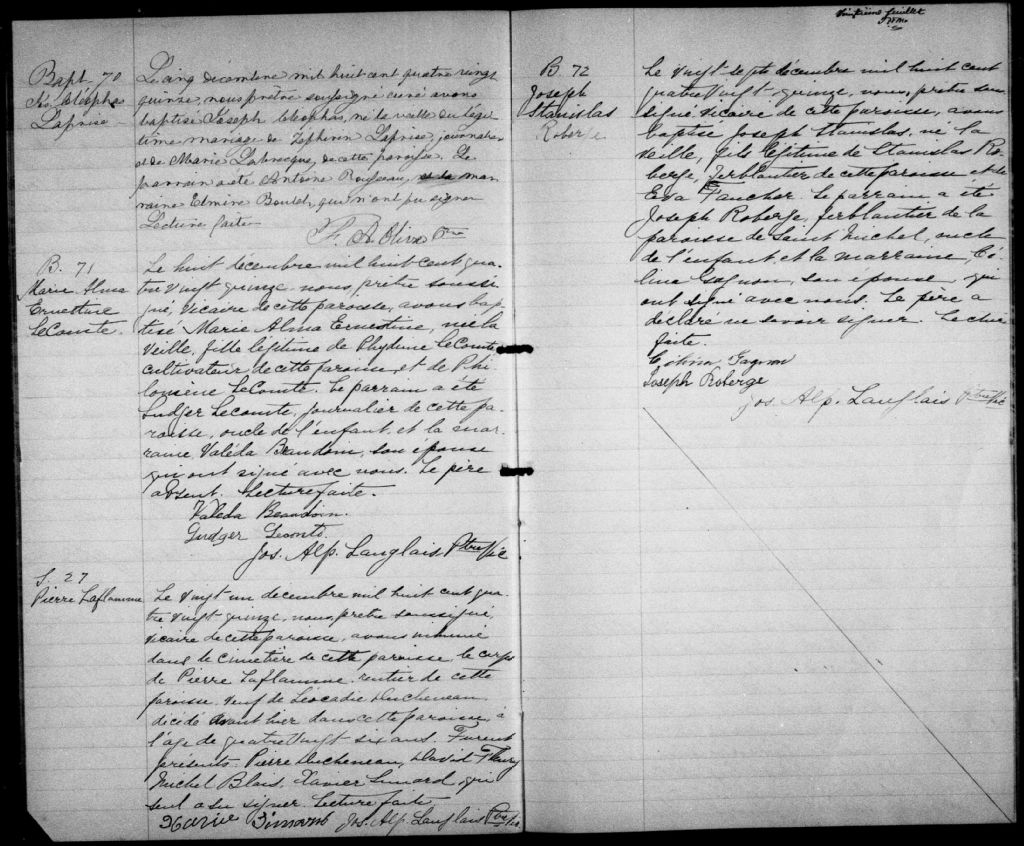 Bapt. 70
Jos. Cléophas
Laprise
Le cinq decembre mil huit cent quatre vingt
quinze, nous prêtre soussigné curé avons
baptisé Joseph Cléophas, né la veille du légi-
time mariage de Zéphirin Laprise, journalier
et de Marie Labrecque, de cette paroisse. Le
parrain a été Antoine Rousseau, et la mar-
raine Elmire Boulet, qui n'ont pu signer
Lecture faite
B. 71
Marie Alma
Ernestine
LeComte.
Le huit decembre mil huit cent qua-
tre vingt quinze nous, prêtre soussi-
gné, vicaire de cette paroisse, avons bap-
tisé Marie Alma Ernestine, née la
veille, fille légitime de Phydime LeComte
cultivateur de cette paroisse, et de Phi-
lomène LeComte. Le parrain a été
Gudger Lecomte, journalier de cette pa-
roisse, oncle de l'enfant, et la mar-
raine Valéda Beaudoin, son épouse
qui ont signé avec nous. Le père
absent. Lecture faite.
Valéda Beaudoin.
Gudger Leconte.
Jos. Alp. Langlais Ptre Vic
S. 27
Pierre Laflamme
Le vingt un decembre mil huit cent qua-
tre vingt quinze, nous, prêtre soussigné,
vicaire de cette paroisse, avons inhumé
dans le cimetière de cette paroisse, le corps
de Pierre Laflamme rentier de cette
paroisse veuf de Léocadie Ducheneau
décédé avant hier dans cette paroisse, à
l'âge de quatre vingt six ans. Furent
présents Pierre Ducheneau, David Fleury
Michel Blais, Xavier Simard, qui
seul a su signer. Lecture faite
Xavie Simard Jos. Alp. Langlais Ptre Vic
feuillet
B. 72
Joseph
Stanislas
Roberge
Le vingt sept decembre mil huit cent
quatre vingt quinze, nous, prêtre sous-
signé vicaire de cette paroisse, avons
baptisé Joseph Stanislas, né la
veille, fils légitime de Stanislas Ro-
berge, ferblantier de cette paroisse et de
Eva Faucher. Le parrain a été
Joseph Roberge, ferblantier de la
paroisse de Saint Michel, oncle
de l'enfant, et la marraine, Cé-
lina Gagnon, son épouse qui
ont signé avec nous. Le père a
déclaré ne savoir signer. Lecture
faite.
Gagnon
Joseph Roberge
Jos. Alp. Langlais Ptre Vic